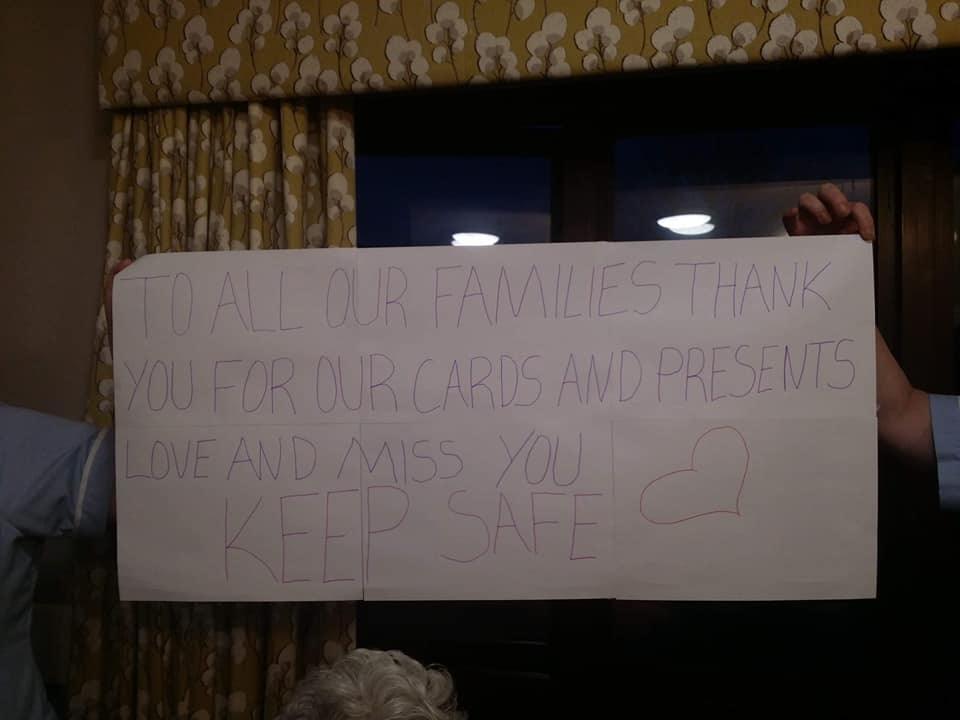 TO ALL OUR FAMILIES THANK
YOU FOR OUR CARDS AND PRESENTS
LOVE AND MISS YOU
KEEP SAFE